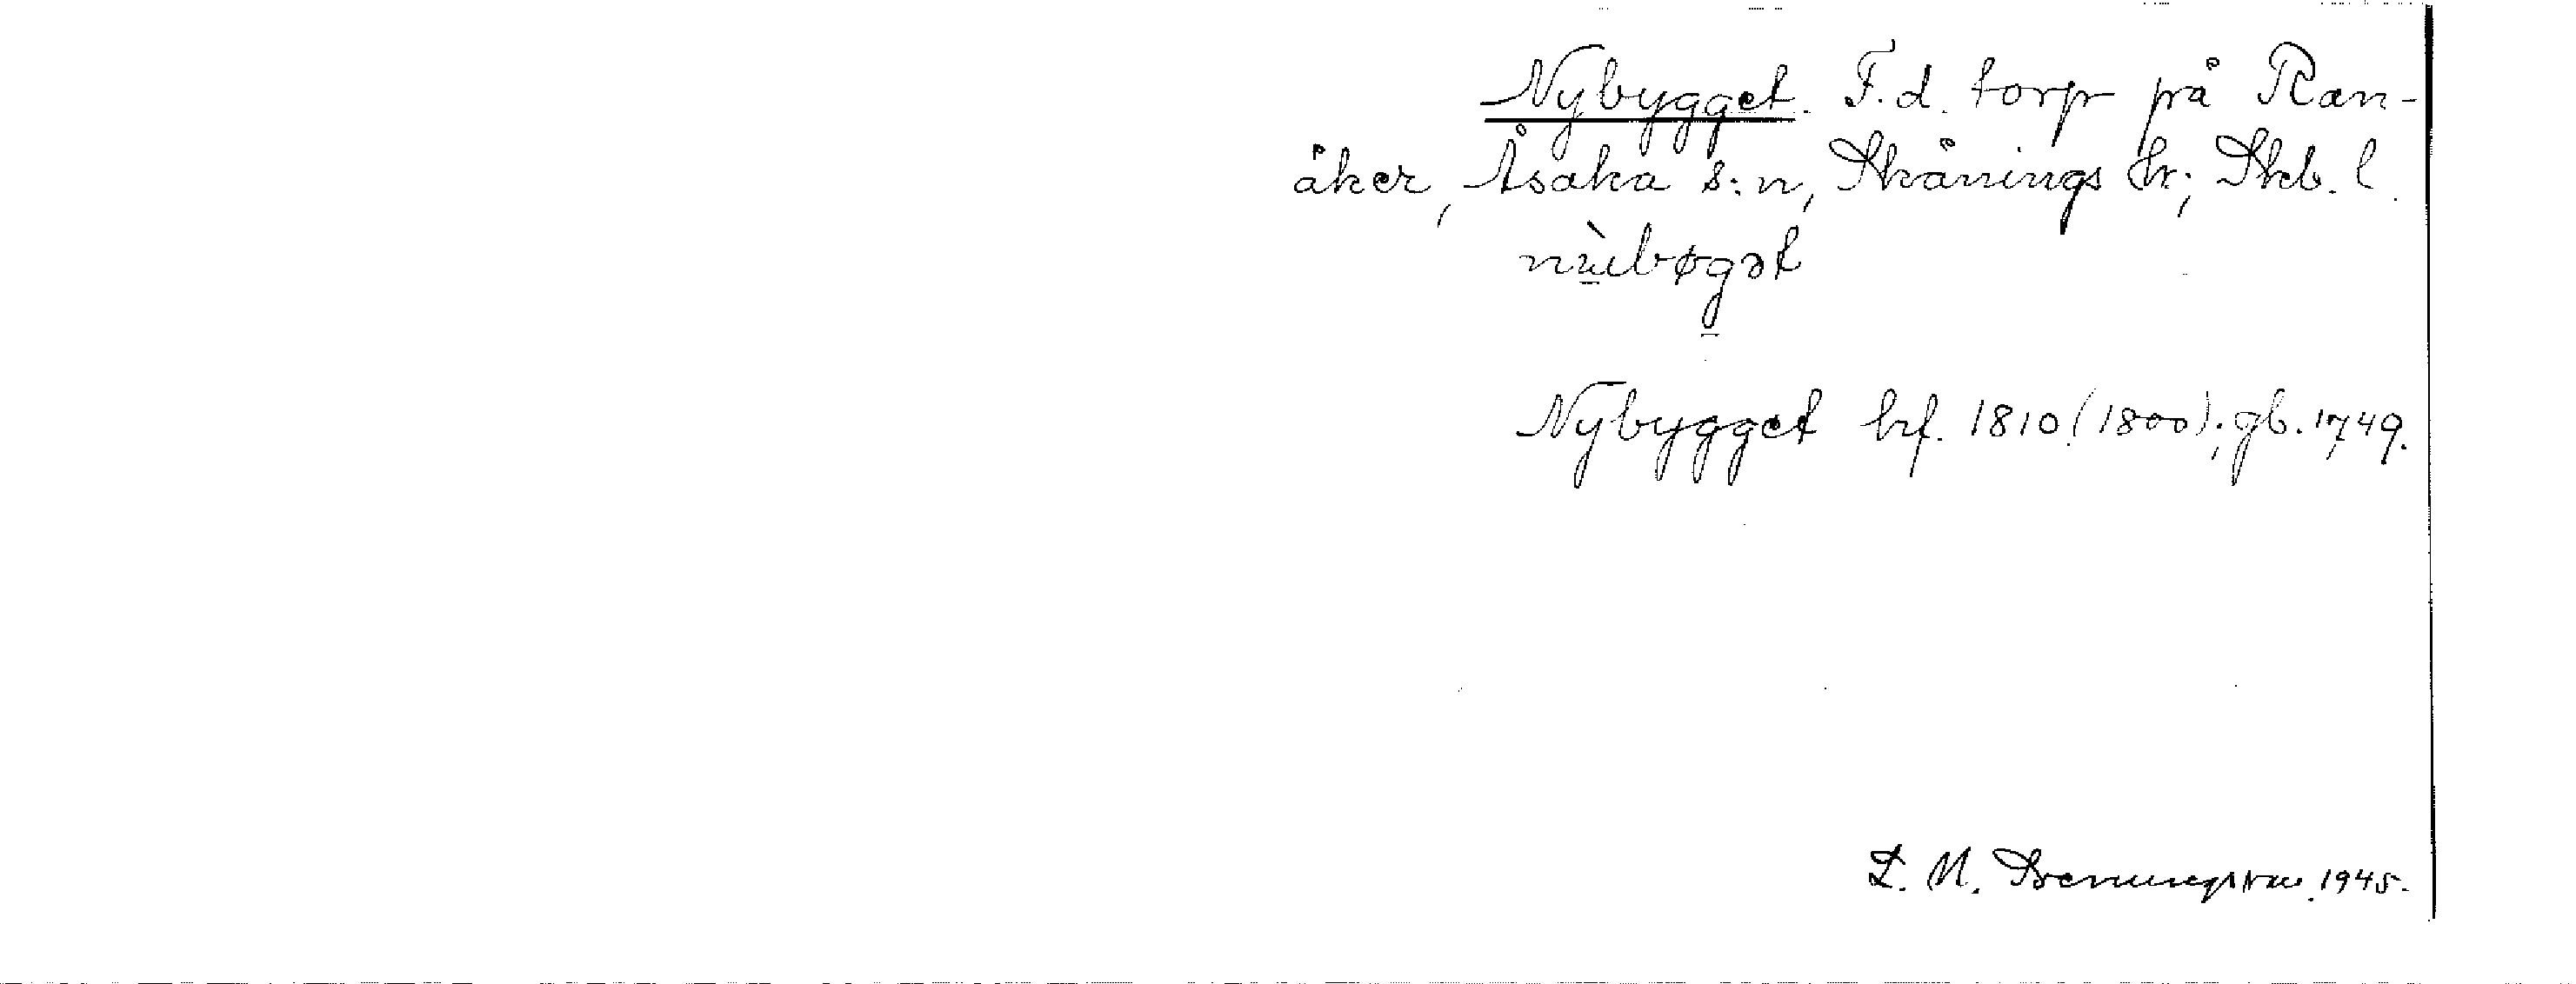 Nybygget. F.d. torp på Ran-
åker, Åsaka s:n, Skånings hr; Skb. l.
nùbøgət
Nybygget hrf. 1810 (1800); gb. 1749.
1945.